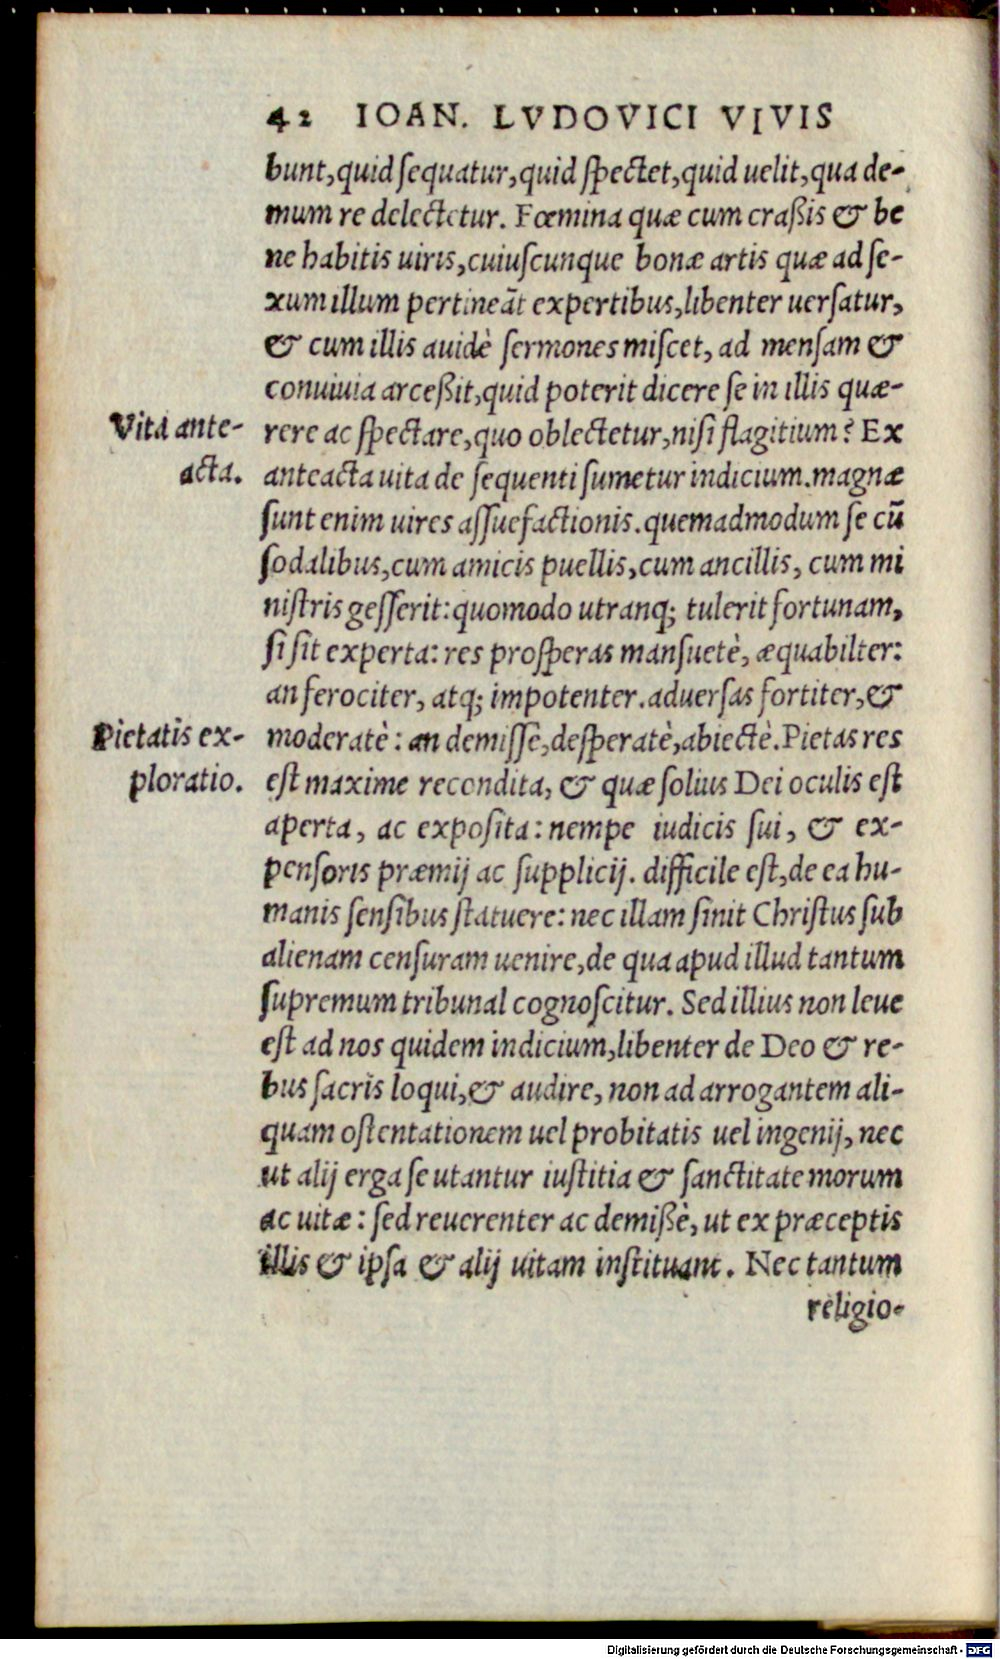 42 IOAN. LVDOVICI VIVIS
bunt, quid ſequatur, quid ſpectet, quid uelit, qua de-
mum re delectetur. Fœmina quæ cum craßis & be
ne habitis uiris, cuiuſcunque bonæ artis quæ ad ſe-
xum illum pertineãt expertibus, libenter uerſatur,
& cum illis auidè ſermones miſcet, ad menſam &
conuiuia arceßit, quid poterit dicere ſe in illis quæ-
Vita ante-
rere ac ſpectare, quo oblectetur, niſi flagitium? Ex
acta.
anteacta uita de ſequenti ſumetur indicium. magnæ
ſunt enim uires aſſuefactionis. quemadmodum ſe cū
ſodalibus, cum amicis puellis, cum ancillis, cum mi
niſtris geſſerit: quomodo utranq; tulerit fortunam,
ſi ſit experta: res proſperas manſuetè, æquabilter:
an ferociter, atq; impotenter. aduerſas fortiter, &
Pietatis ex-
moderatè: an demiſſè, deſperatè, abiectè. Pietas res
ploratio.
eſt maxime recondita, & quæ ſolius Dei oculis eſt
aperta, ac expoſita: nempe iudicis ſui, & ex-
penſoris præmij ac ſupplicij. difficile eſt, de ea hu-
manis ſenſibus ſtatuere: nec illam ſinit Chriſtus ſub
alienam cenſuram uenire, de qua apud illud tantum
ſupremum tribunal cognoſcitur. Sed illius non leue
eſt ad nos quidem indicium, libenter de Deo & re-
bus ſacris loqui, & audire, non ad arrogantem ali-
quam oſtentationem uel probitatis uel ingenij, nec
ut alij erga ſe utantur iuſtitia & ſanctitate morum
ac uitæ: ſed reuerenter ac demißè, ut ex præceptis
illis & ipſa & alij uitam inſtituant. Nec tantum
religio-
Digitalisierung gefördert durch die Deutsche Forschungsgemeinschaft - DFG